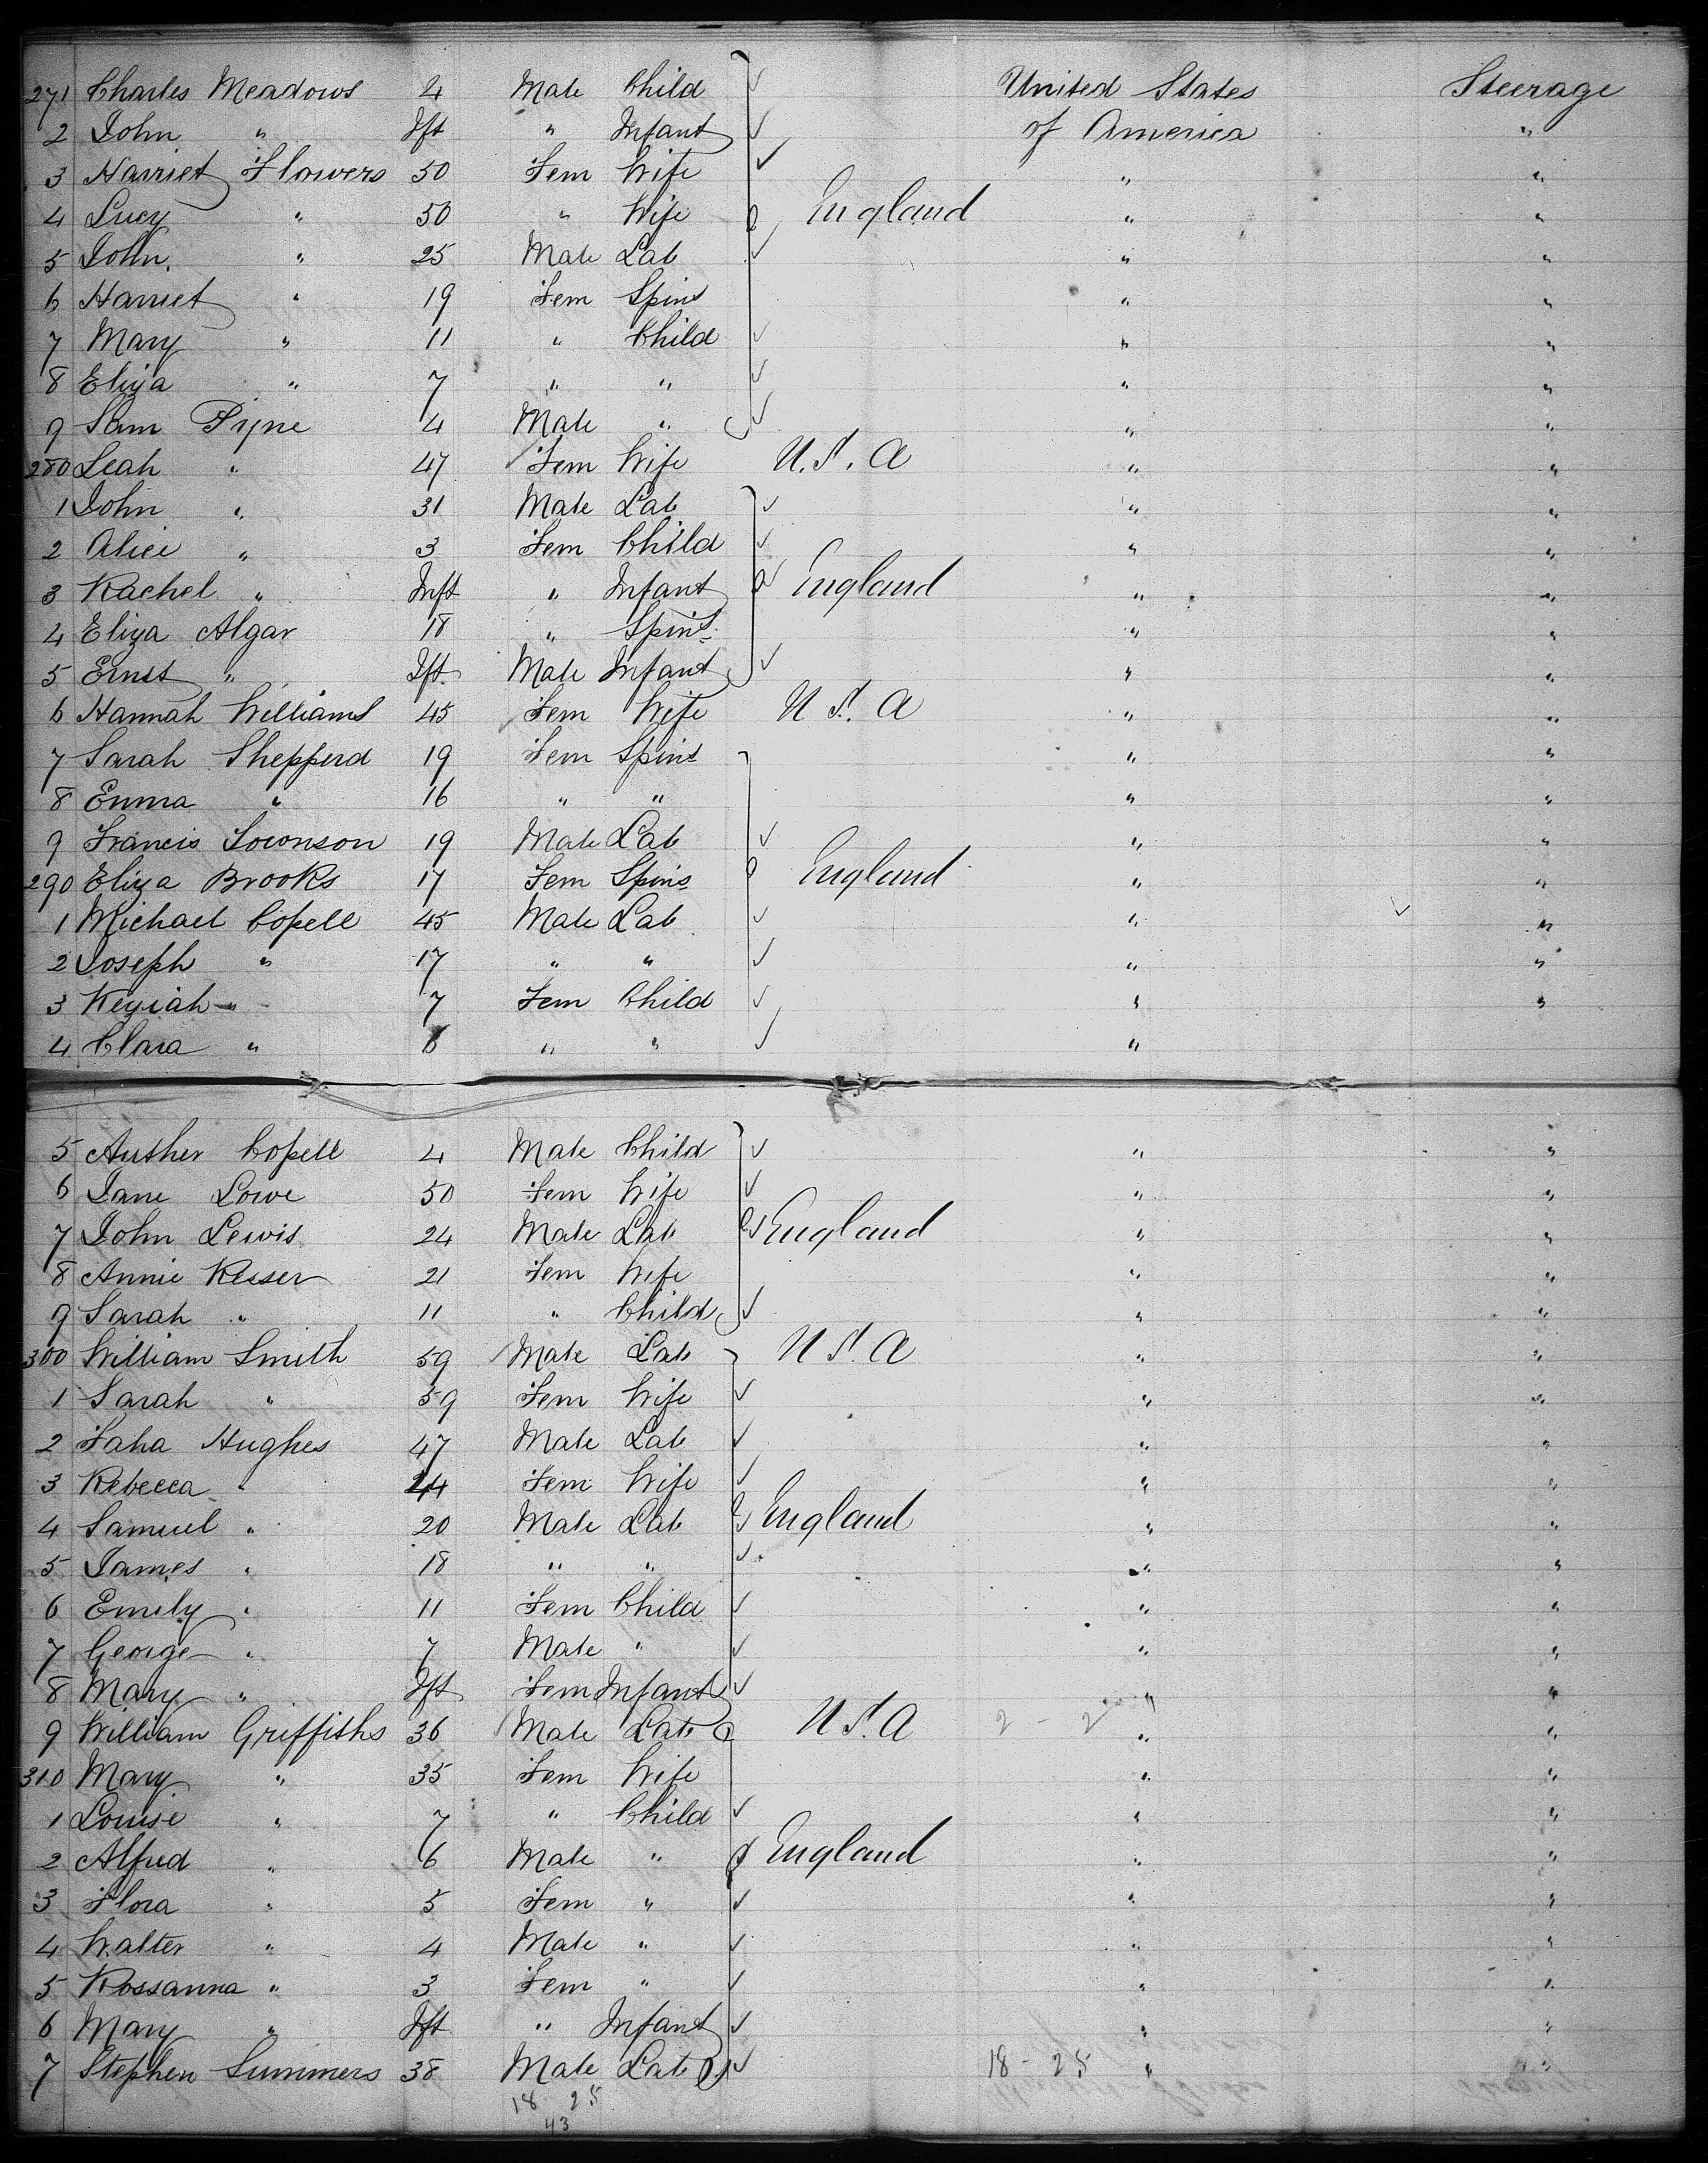 271 Charles Meadows 4 Male Child United States Steerage
2 John " Ift " Infant of America "
3 Harriet Flowers 50 Fem Wife " "
4 Lucy " 50 " Wife England " "
5 John " 25 Male Lab " "
6 Harriet " 19 Fem Spins " "
7 Mary " 11 " Child " "
8 Eliza " 7 " " " "
9 Sam Pyne 4 Male " " "
280 Leah " 47 Fem Wife U.S.A " "
1 John " 31 Male Lab " "
2 Alice " 3 Fem Child " "
3 Rachel " Inft " Infant England " "
4 Eliza Algar 18 " Spins " "
5 Ernst " Ift Male Infant " "
6 Hannah Williams 45 Fem Wife U.S.A " "
7 Sarah Shepperd 19 Fem Spins " "
8 Emma " 16 " " " "
9 Francis Townson 19 Male Lab " "
290 Eliza Brooks 17 Fem Spins England " "
1 Michael Copell 45 Male Lab " "
2 Joseph " 17 " " " "
3 Keziah " 7 Fem Child " "
4 Clara " 6 " " "
5 Auther Copell 4 Male Child " "
6 Jane Lowe 50 Fem Wife " "
7 John Lewis 24 Male Lab England " "
8 Annie Keiser 21 Fem Wife " "
9 Sarah " 11 " Child " "
300 William Smith 59 Male Lab U.S.A " "
1 Sarah " 59 Fem Wife " "
2 Hughes 47 Male Lab " "
3 Rebecca " 44 Fem Wife " "
4 Samuel " 20 Male Lab England " "
5 James " 18 " " " "
6 Emily " 11 Fem Child " "
7 George " 7 Male " " "
8 Mary " Ift Fem Infant " "
9 William Griffiths 36 Male Lab U.S.A 2 - 2 " "
310 Mary " 35 Fem Wife " "
1 Louise " 7 " Child " "
2 Alfred " 6 Male " England " "
3 Flora " 5 Fem " " "
4 Walter " 4 Male " " "
5 Rossanna " 3 Fem " " "
6 Mary " Ift " Infant " "
7 Stephen Summers 38 Male Lab 18 - 25 " "
18 25
43